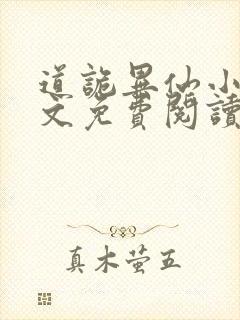 道詭異仙小
文免費閱讀
真木萤五